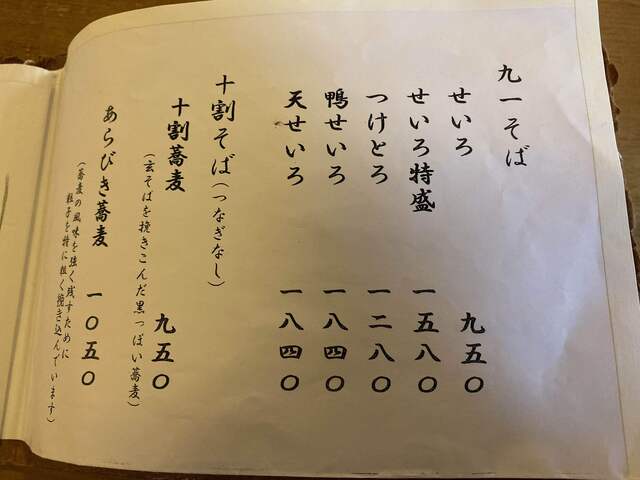 九一そば
せいろ 九五〇
せいろ特盛 一五八〇
つけとろ 一二八〇
鴨せいろ 一八四〇
天せいろ 一八四〇
十割そば(つなぎなし)
十割蕎麦 九五〇
(玄そばを挽きこんだ黒っぽい蕎麦)
あらびき蕎麦 一〇五〇
(蕎麦の風味を強く残すために
粒子を特に粗く挽き込んでいます)